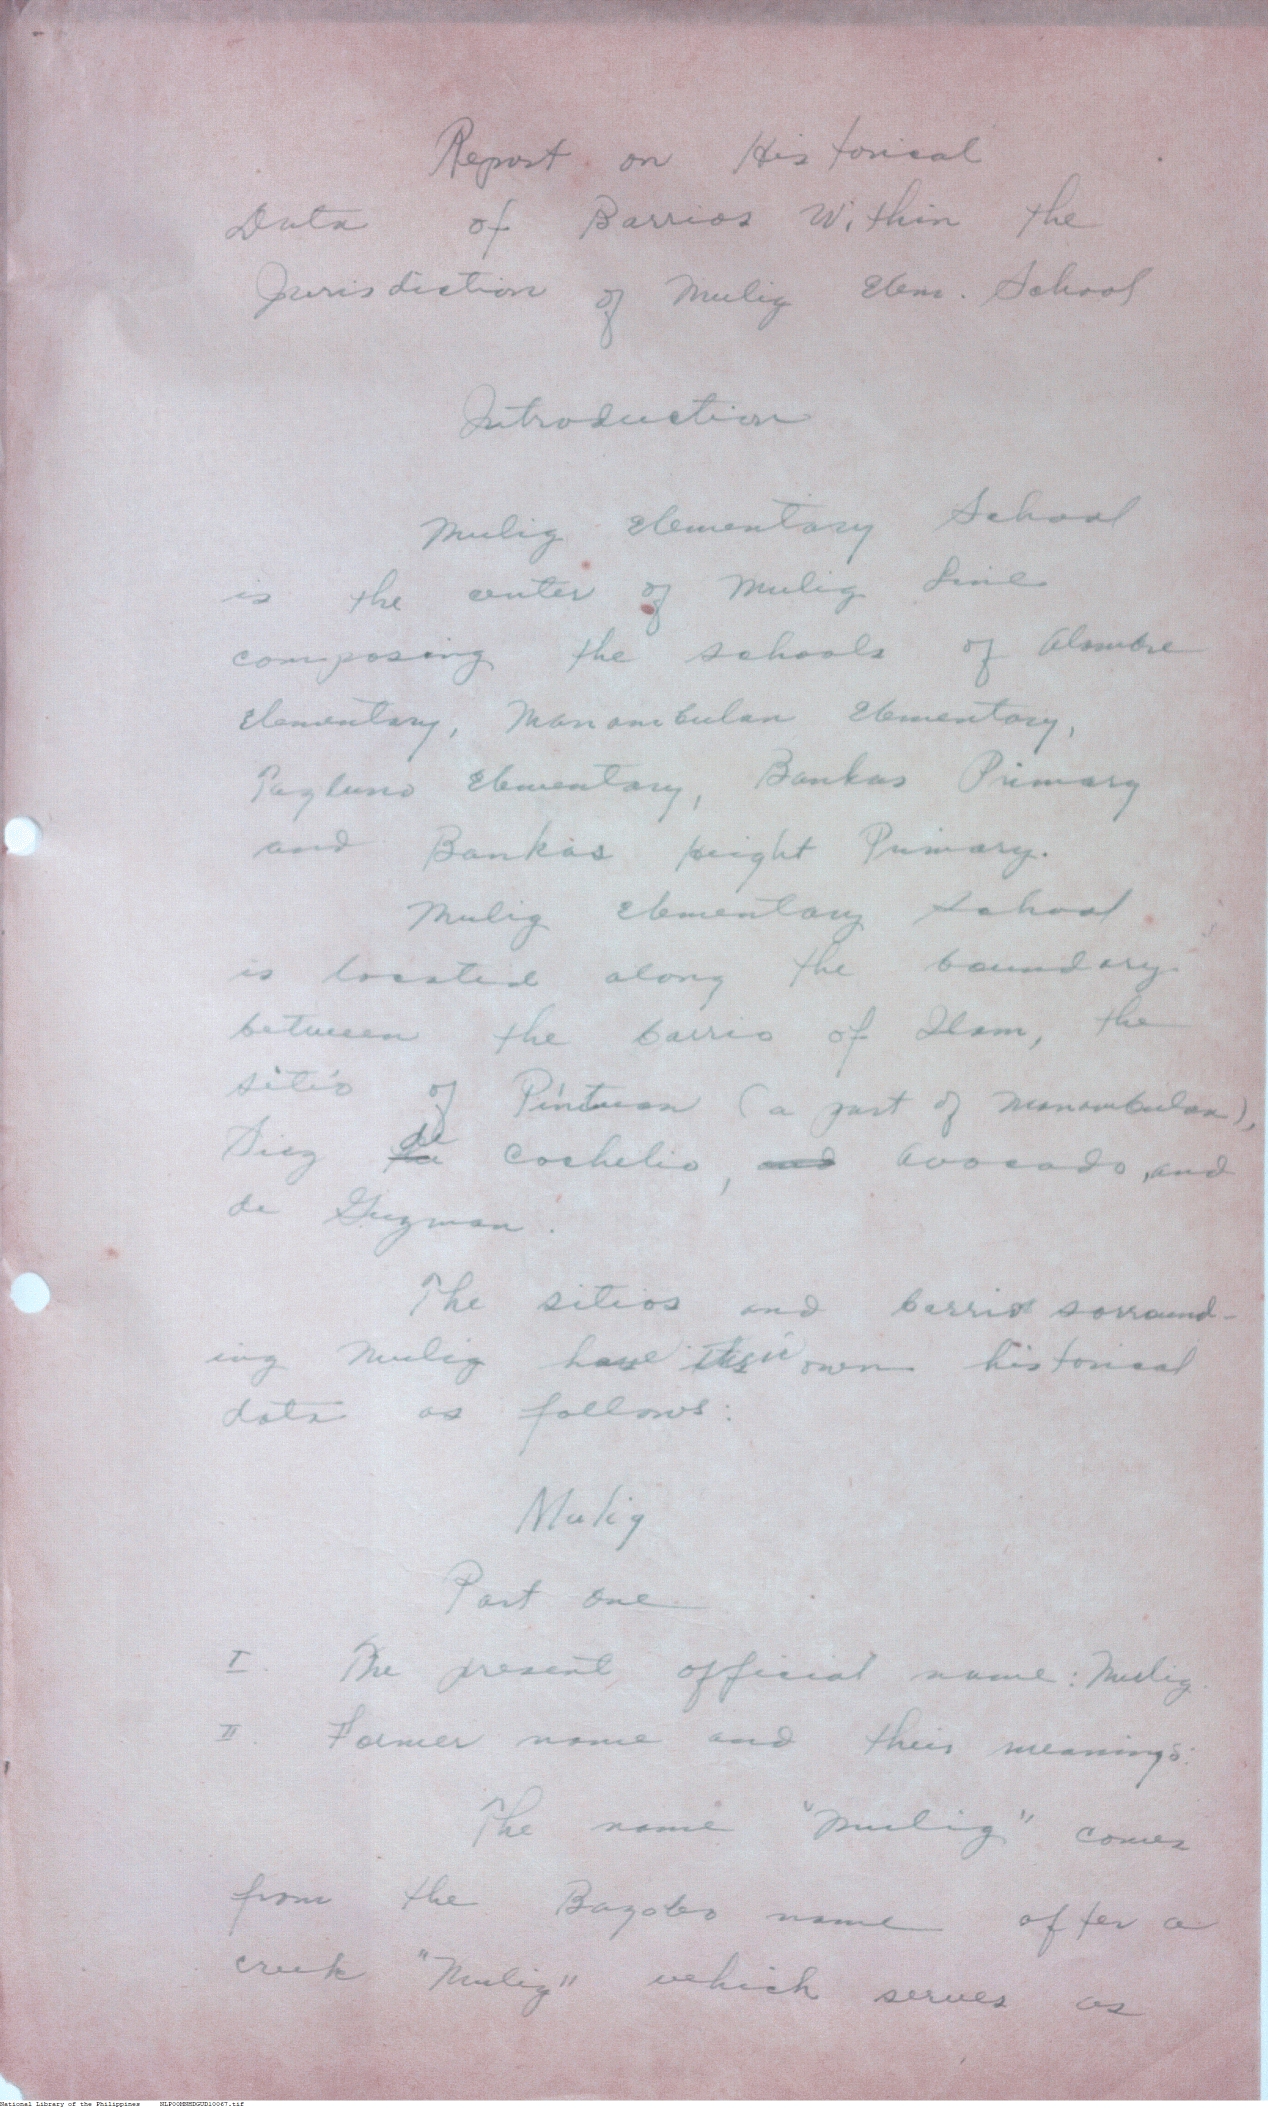 Report on Historical
Data of Barrios Within the
Jurisdiction of Mulig Elem. School
Introduction
Mulig Elementary School
is the center of Mulig Line
composing the schools of Alambre
Elementary, Manambulan Elementary,
Pagluno Elementary, Bankas Primary
and Bankas Height Primary.
Mulig Elementary School
is located along the boundary
between the barrio of Ilam, the
sitio of Pintuan (a part of Manambulan),
Diez de Cochelio, and Avocado, and
de Guzman.
The sitios and barrios sorround-
ing Mulig have their own historical
data as follows:
Mulig
Part One
I. The present official name: Mulig
II. Former name and their meanings:
The name "Mulig" comes
from the Bagobo name after a
creek "Mulig" which serves as
National Library of the Philippines NLPOOMNHDGUD10067.tif